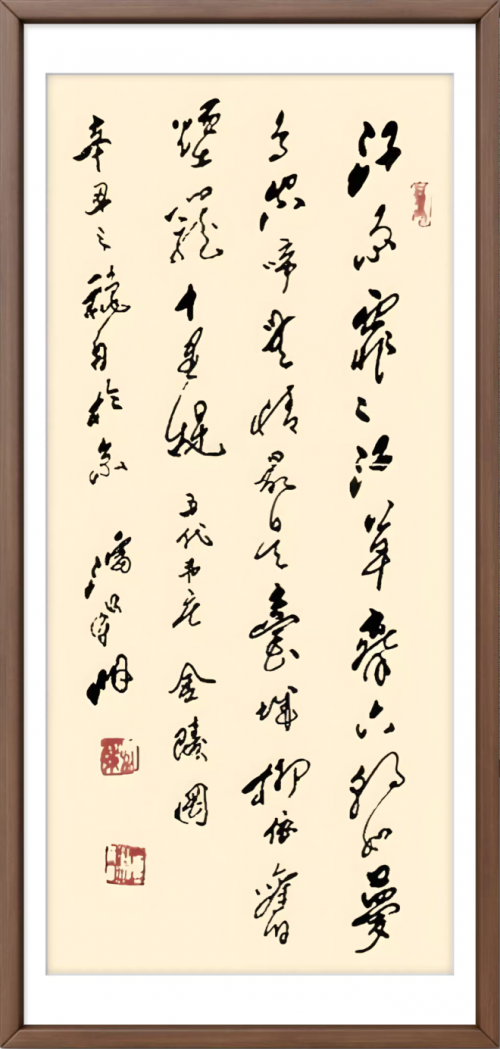 江雨霏〻江草齊六朝如夢
鳥空啼無情最是臺城柳依舊
煙籠十里堤 五代韦庄 金陵圖
辛丑之穐月於京